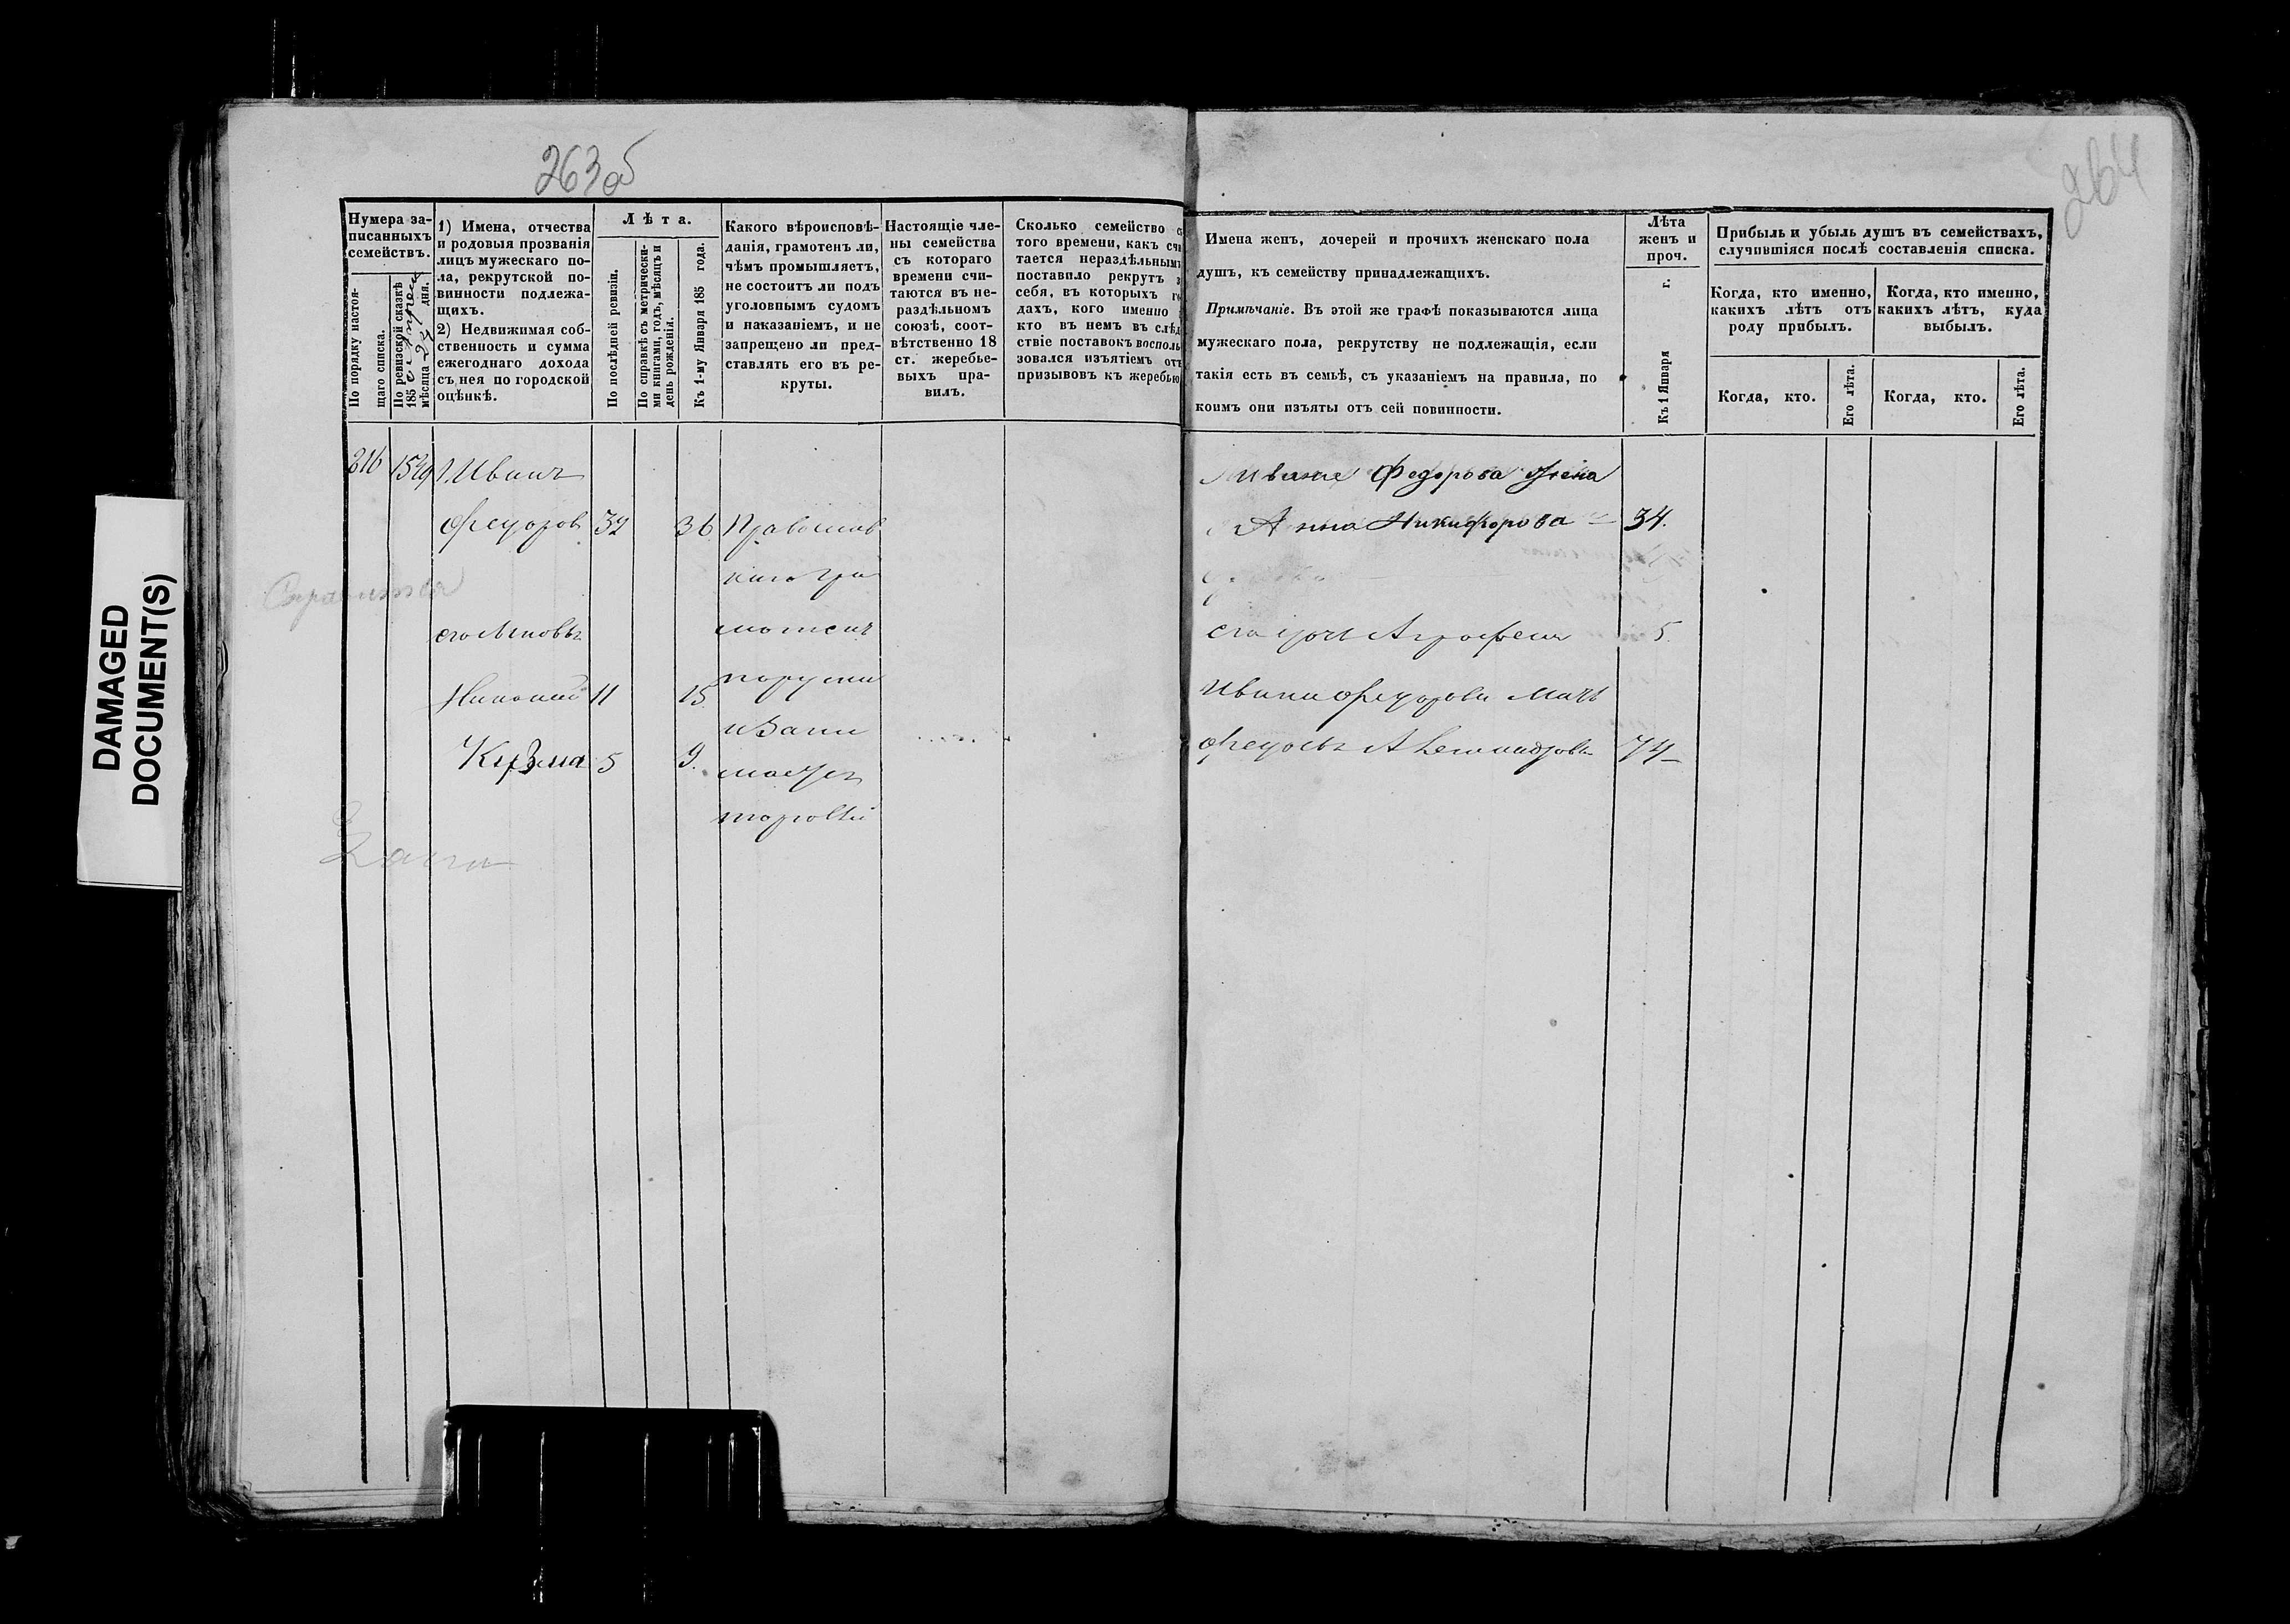 263об
264
DAMAGED
DOCUMENT(S)
Нумера за-
писанныхъ
семействъ.
По порядку настоя-
щаго списка.
По ревизской сказкѣ
185
мѣсяца 23 дня.
1) Имена, отчества
и родовыя прозванія
лицъ мужескаго по-
ла, рекрутской по-
винности подлежа-
щихъ.
2) Недвижимая соб-
ственность и сумма
ежегоднаго дохода
съ нея по городской
оцѣнкѣ.
Лѣта.
По послѣдней ревизіи.
По справкѣ съ метрически-
ми книгами, годъ, мѣсяцъ и
день рожденія.
Къ 1-му Января 185 года.
Какого вѣроисповѣ-
данія, грамотенъ ли,
чѣмъ промышляетъ,
не состоитъ ли подъ
уголовнымъ судомъ
и наказаніемъ, и не
запрещено ли пред-
ставлять его въ ре-
круты.
Настоящіе чле-
ны семейства
съ котораго
времени счи-
таются въ не-
раздѣльномъ
союзѣ, соот-
вѣтственно 18
ст. жеребье-
выхъ пра-
вилъ.
Сколько семейство с
того времени, какъ счи
тается нераздѣльнымъ
поставило рекрутъ з
себя, въ которыхъ го
дахъ, кого именно
кто въ немъ въ слѣд
ствіе поставокъ восполь
зовался изъятіемъ отъ
призывовъ къ жеребью
Имена женъ, дочерей и прочихъ женскаго пола
душъ, къ семейству принадлежащихъ.
Примѣчаніе. Въ этой же графѣ показываются лица
мужескаго пола, рекрутству не подлежащія, если
такія есть въ семьѣ, съ указаніемъ на правила, по
коимъ они изъяты отъ сей повинности.
Лѣта
женъ и
проч.
Къ 1 Января г.
Прибыль и убыль душъ въ семействахъ,
случившіяся послѣ составленія списка.
Когда, кто именно,
какихъ лѣтъ отъ
роду прибылъ.
Когда, кто именно,
какихъ лѣтъ, куда
выбылъ.
Когда, кто.
Его лѣта.
Когда, кто.
Его лѣта.
316 Иванъ
Федоровъ 32 36 Православ
его сыновья
Николай 11 15
Кузма 5 9.
Ивана Федорова жена
Анна Никифорова 34.
его дочь Аграфена 5.
Ивана Федорова мать
Федосья Александрова 74